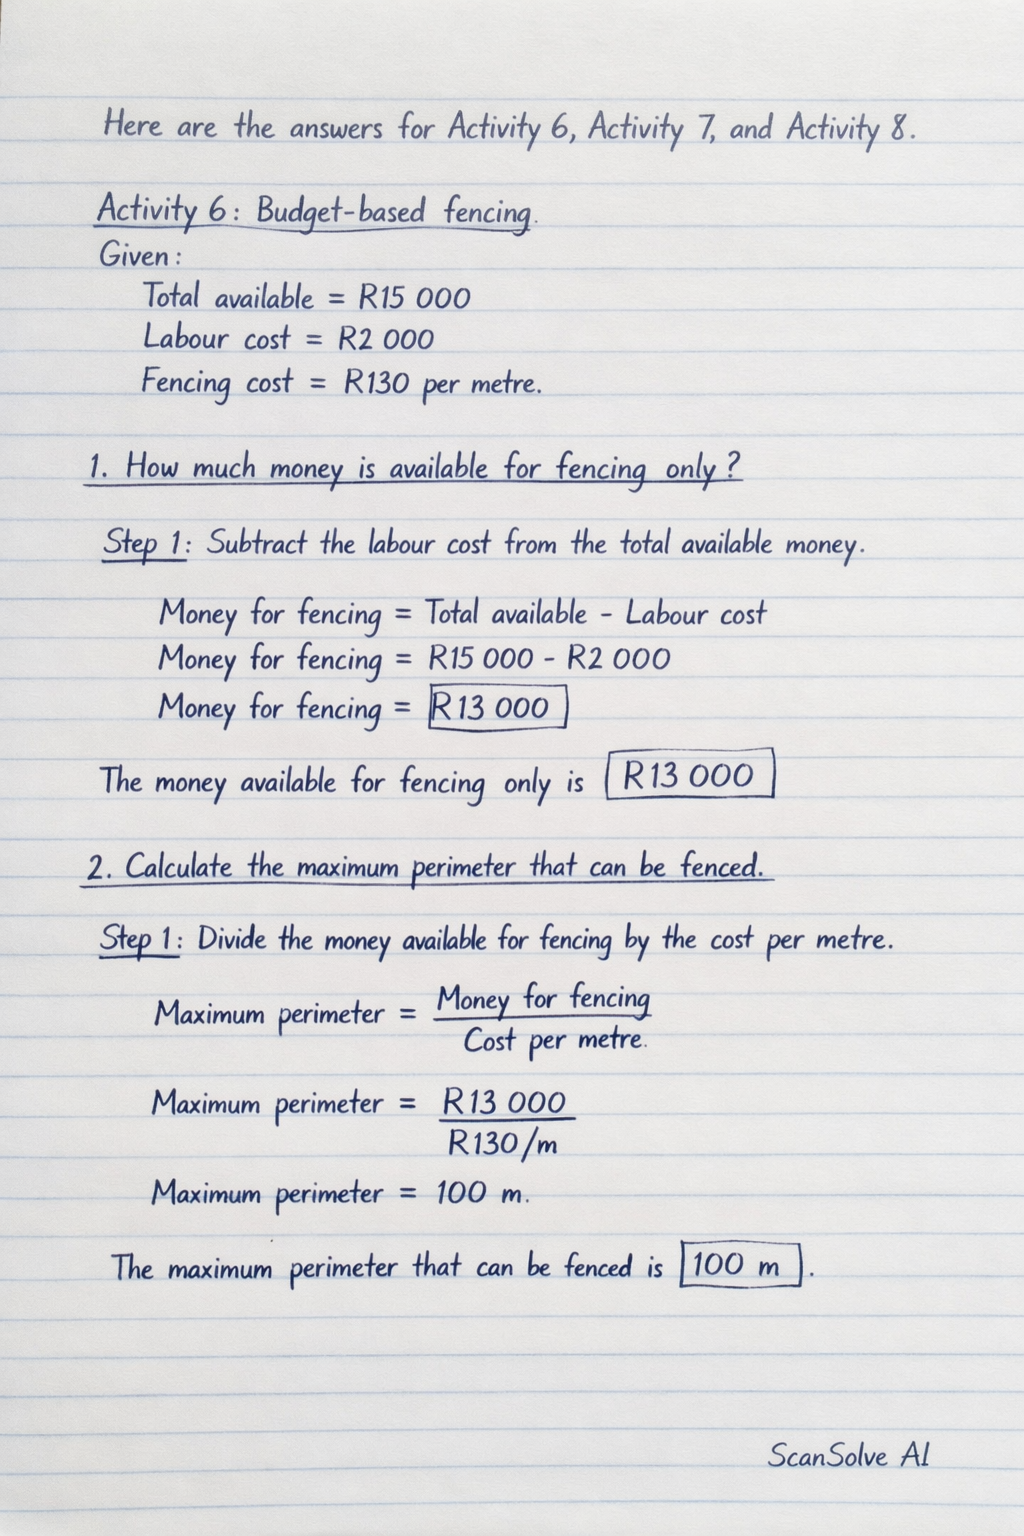 Here are the answers for Activity 6, Activity 7, and Activity 8.
Activity 6: Budget-based fencing.
Given:
Total available = R15 000
Labour cost = R2 000
Fencing cost = R130 per metre.
1. How much money is available for fencing only?
Step 1: Subtract the labour cost from the total available money.
Money for fencing = Total available - Labour cost
Money for fencing = R15 000 - R2 000
Money for fencing = R13 000
The money available for fencing only is R13 000
2. Calculate the maximum perimeter that can be fenced.
Step 1: Divide the money available for fencing by the cost per metre.
Maximum perimeter = Money for fencing
Cost per metre.
Maximum perimeter = R13 000
R130/m
Maximum perimeter = 100 m.
The maximum perimeter that can be fenced is 100 m.
ScanSolve AI